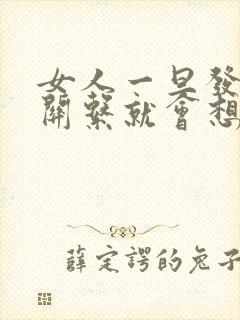 女人一旦發
關繫就會想
薛定諤的兔子